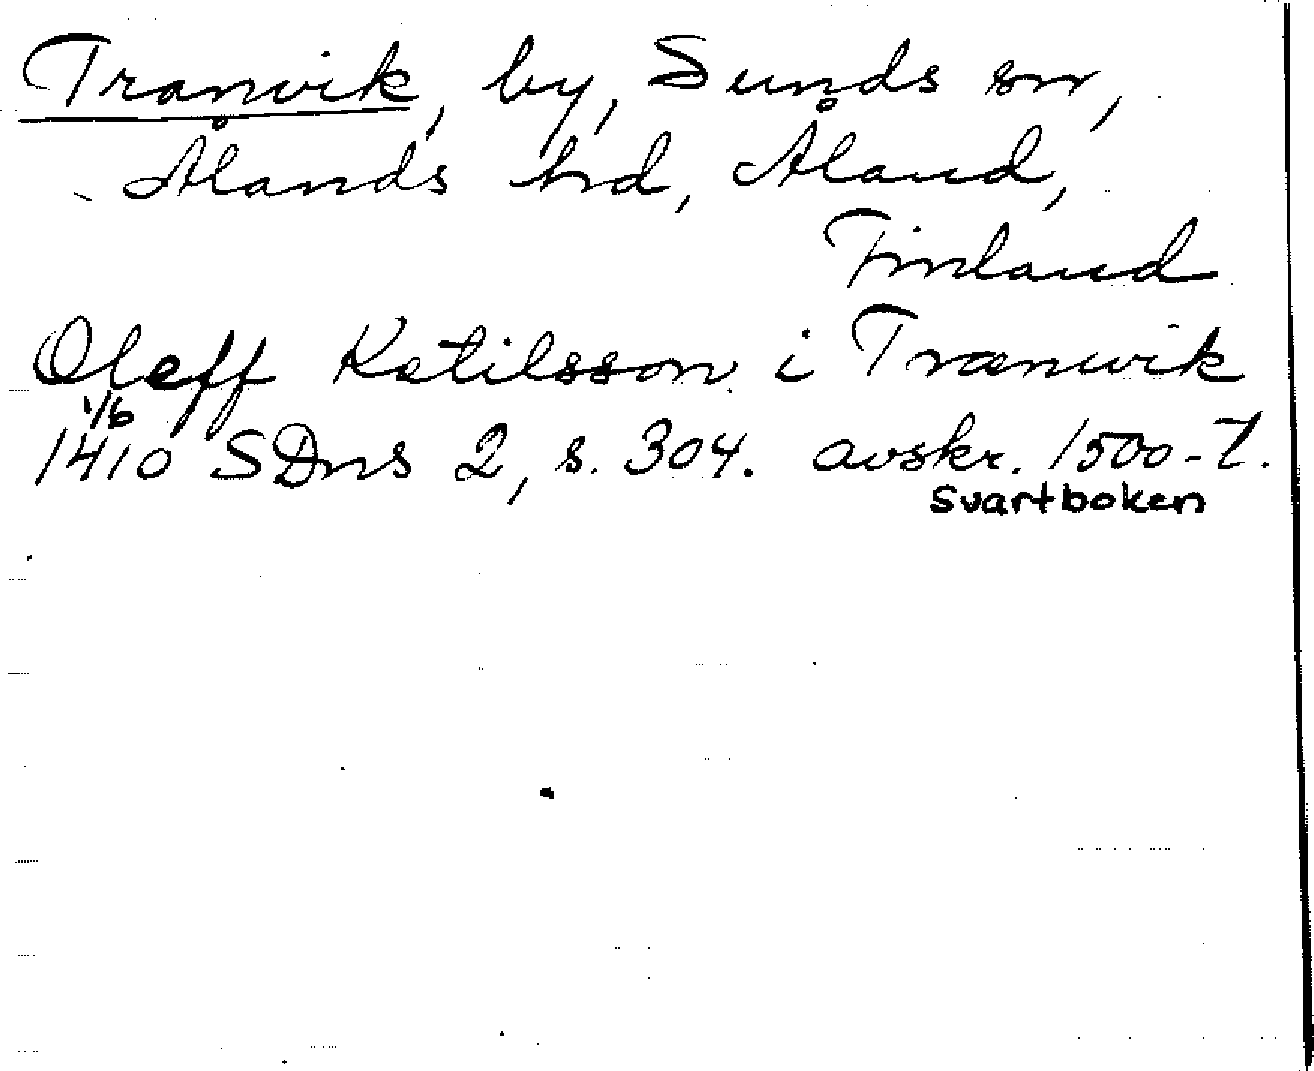 Tranvik, by, Sunds sn,
Ålands hd, Åland,
Finland
Oleff Ketilsson i Trænwik
1/6
1410 SDns 2, s. 304. avskr. 1500-t.
Svartboken